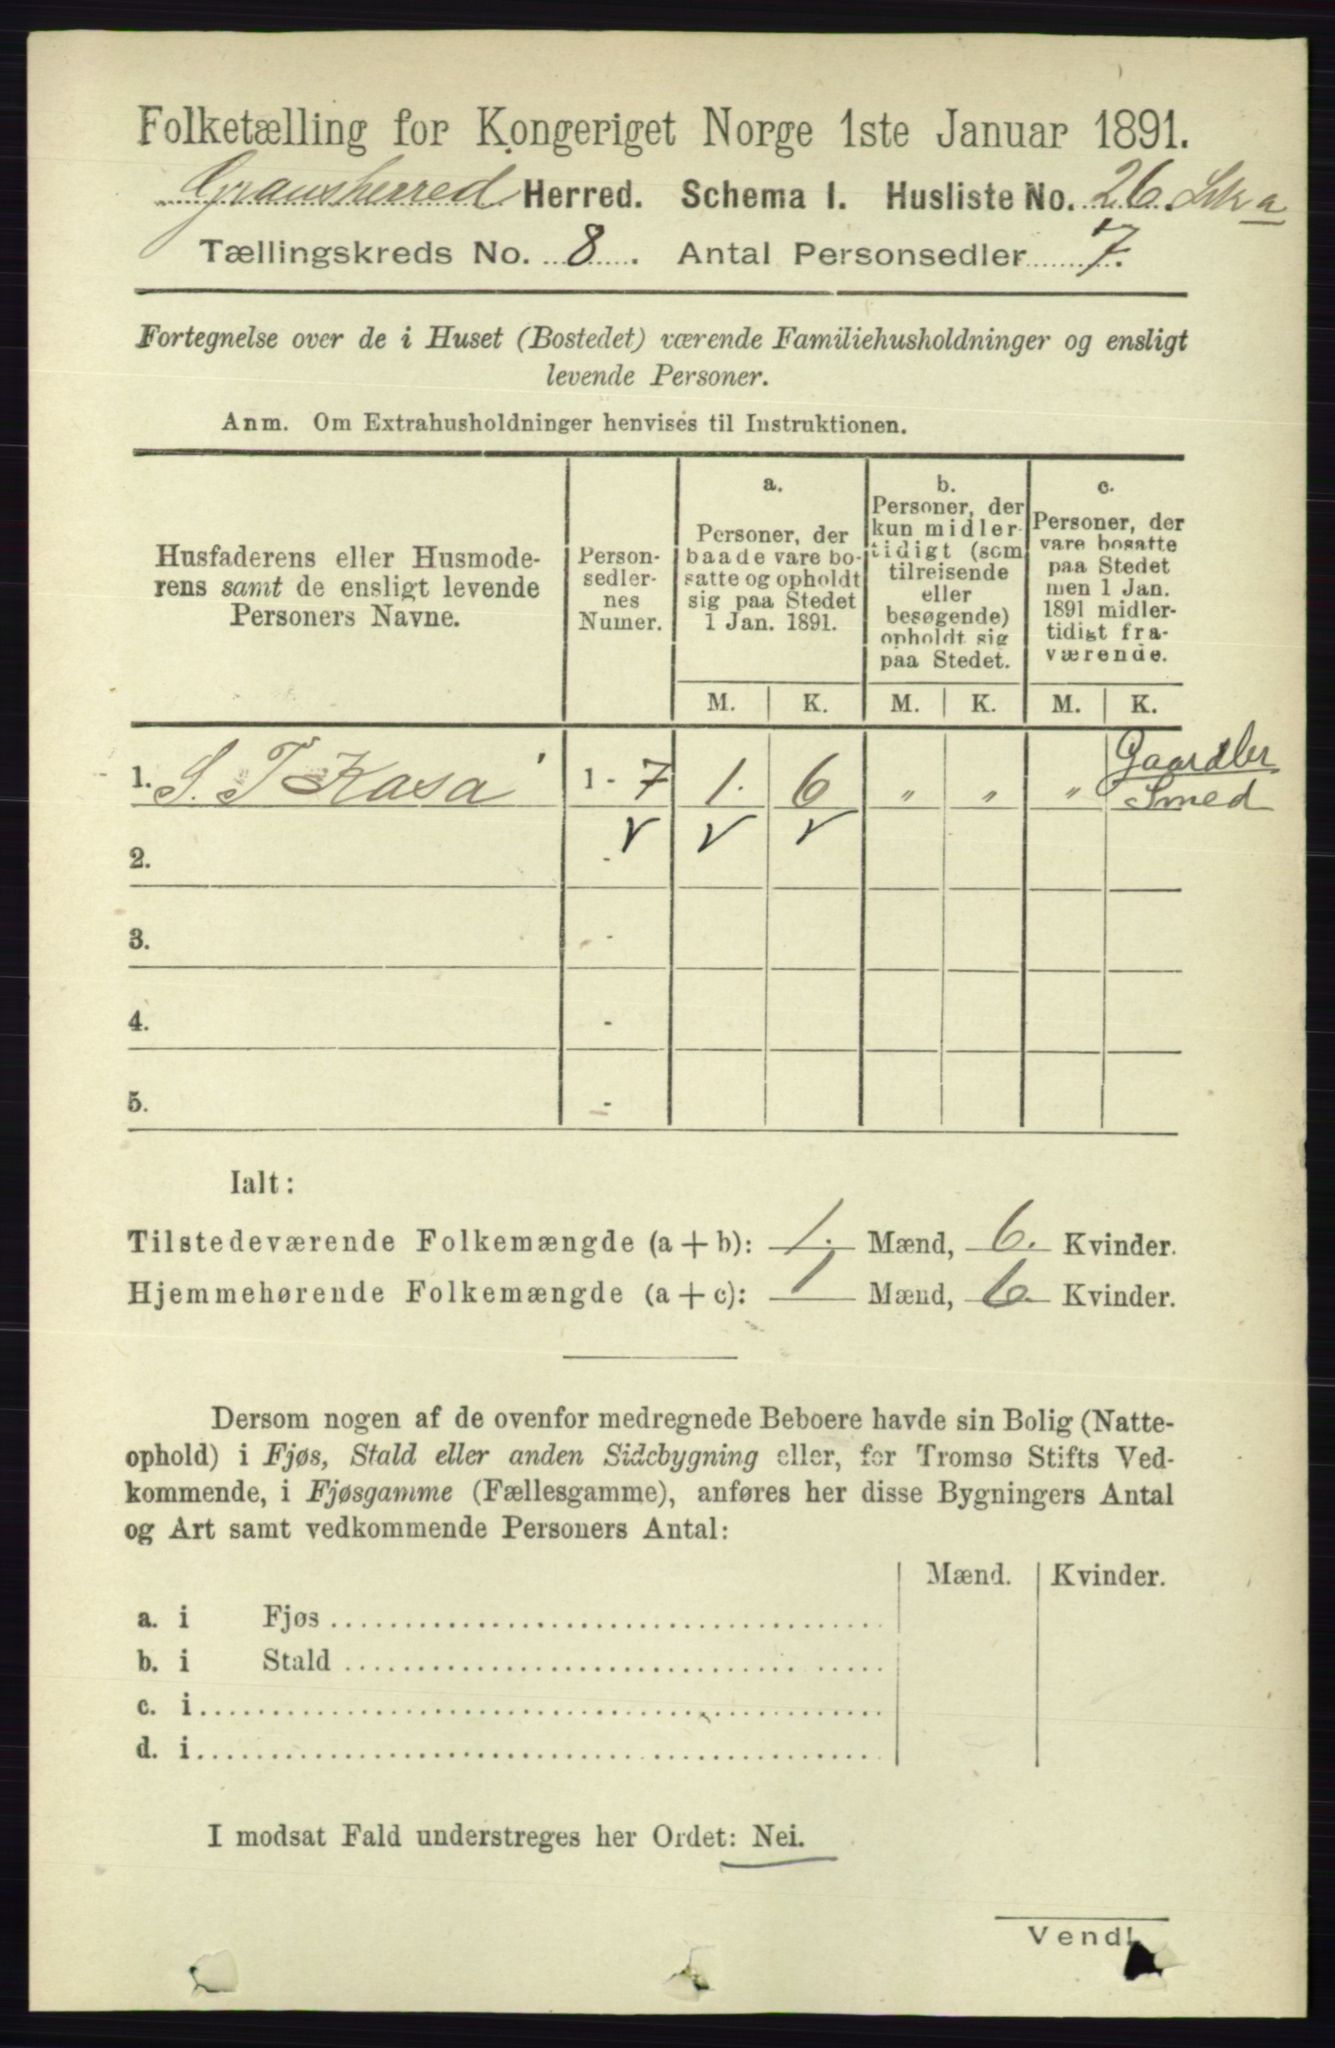 Folketælling for Kongeriget Norge 1ste Januar 1891.
Gransherred Herred. Schema I. Husliste No. 26.
Tællingskreds No. 8. Antal Personsedler 7.
Fortegnelse over de i Huset (Bostedet) værende Familiehusholdninger og ensligt
levende Personer.
Anm. Om Extrahusholdninger henvises til Instruktionen.
Husfaderens eller Husmode-
rens samt de ensligt levende
Personers Navne.
Person-
sedler-
nes
Numer.
a.
Personer, der
baade vare bo-
satte og opholdt
sig paa Stedet
1 Jan. 1891.
b.
Personer, der
kun midler-
tidigt (som
tilreisende
eller
besøgende)
opholdt sig
paa Stedet.
c.
Personer, der
vare bosatte
paa Stedet
men 1 Jan.
1891 midler-
tidigt fra-
værende.
M. K. M. K. M. K.
1. S. T Kasa 1 - 7 1. 6 " " " Gaardbr
Smed
2. -
3. -
4. -
5. -
Ialt:
Tilstedeværende Folkemængde (a + b): 1. Mænd, 6. Kvinder.
Hjemmehørende Folkemængde (a + c): 1 Mænd, 6 Kvinder.
Dersom nogen af de ovenfor medregnede Beboere havde sin Bolig (Natte-
ophold) i Fjøs, Stald eller anden Sidebygning eller, for Tromsø Stifts Ved-
kommende, i Fjøsgamme (Fællesgamme), anføres her disse Bygningers Antal
og Art samt vedkommende Personers Antal:
Mænd. Kvinder.
a. i Fjøs
b. i Stald
c. i
d. i
I modsat Fald understreges her Ordet: Nei.
Vend!